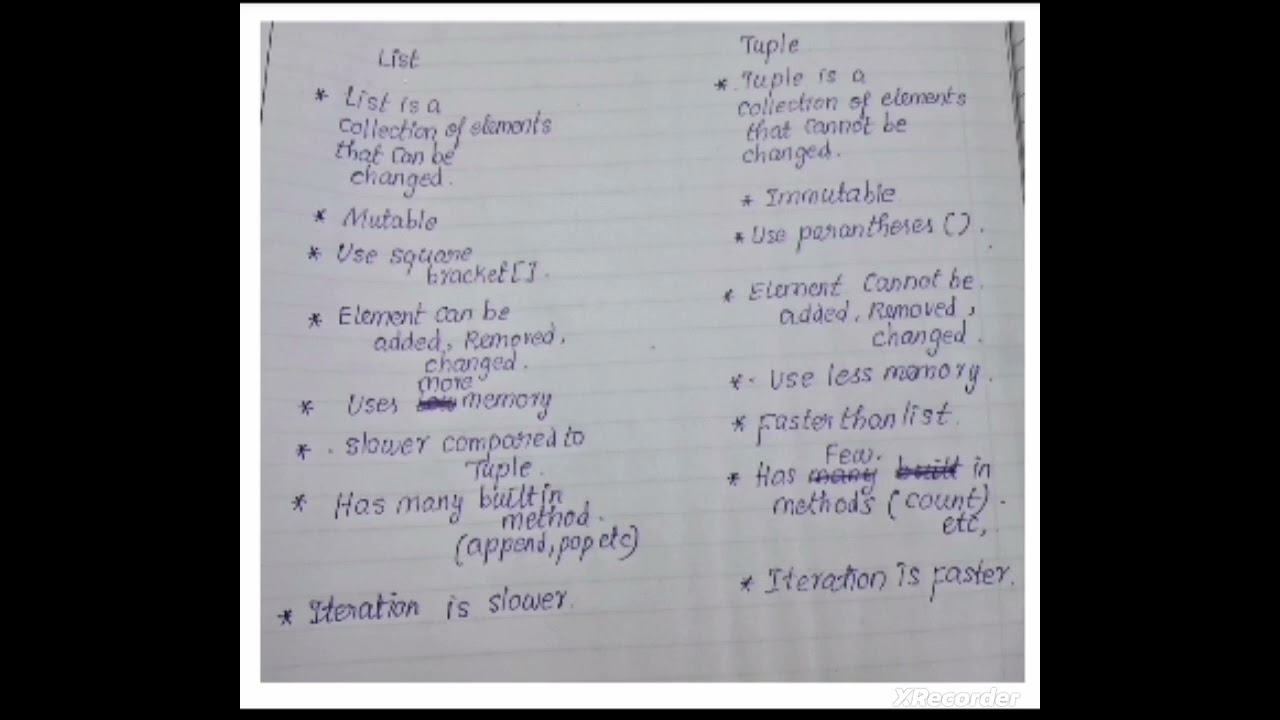 List
* List is a
collection of elements
that can be
changed.
* Mutable
* Use square
bracket [].
* Element can be
added, Removed,
changed.
more
* Uses memory
* . Slower compared to
Tuple.
* Has many built in
method.
(append, pop etc)
* Iteration is slower.
Tuple
* Tuple is a
collection of elements
that cannot be
changed.
* Immutable
* Use parantheses ().
* Element Cannot be
added, Removed,
changed.
* Use less memory.
* Faster than list.
Few.
* Has many built in
methods (count).
etc,
* Iteration is Faster.
XRecorder